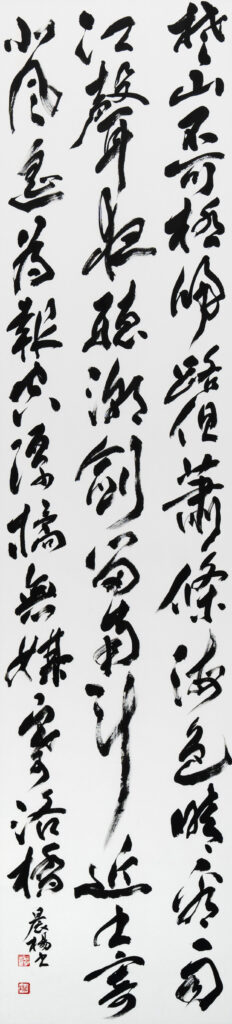 楚山不可極歸路但蕭條海色晴看雨
江聲夜聽潮劍留南斗近書寄
北風遙為報空潭橘無媒寄洛橋
晨楊書